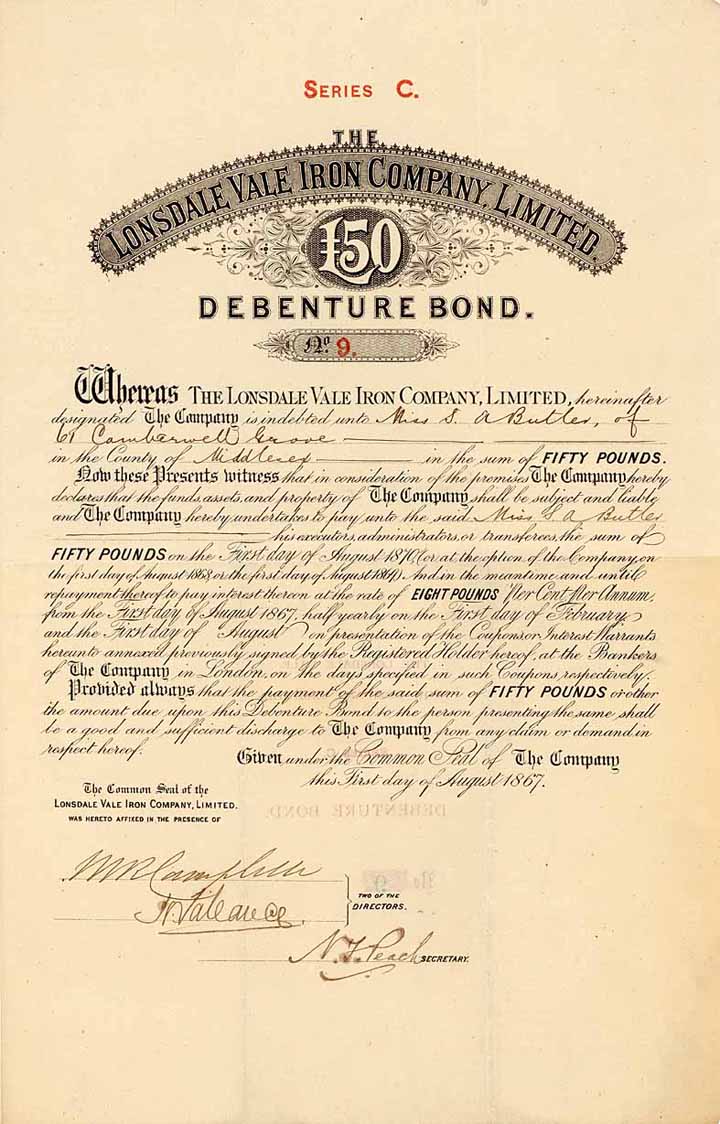 SERIES C.
THE
LONSDALE VALE IRON COMPANY, LIMITED.
£50
DEBENTURE BOND.
No. 9.
Whereas THE LONSDALE VALE IRON COMPANY, LIMITED, hereinafter
designated The Company is indebted unto Miss S. A Butler, of
61 Camberwell Grove
in the County of Middlesex in the sum of FIFTY POUNDS.
Now these Presents witness that in consideration of the premises The Company hereby
declares that the funds, assets, and property of The Company shall be subject and liable
and The Company hereby undertakes to pay unto the said Miss S. A Butler
his executors, administrators, or transferees, the sum of
FIFTY POUNDS on the First day of August 1870, (or at the option of the Company, on
the first day of August 1868, or the first day of August 1869). And in the meantime and until
repayment thereof to pay interest thereon at the rate of EIGHT POUNDS Per Cent Per Annum,
from the First day of August 1867, half yearly on the First day of February
and the First day of August on presentation of the Coupons or Interest Warrants
hereunto annexed previously signed by the Registered Holder hereof, at the Bankers
of The Company in London, on the days specified in such Coupons, respectively.
Provided always that the payment of the said sum of FIFTY POUNDS or other
the amount due upon this Debenture Bond to the person presenting the same shall
be a good and sufficient discharge to The Company from any claim or demand in
respect hereof.
Given under the Common Seal of The Company
this First day of August 1867.
The Common Seal of the
LONSDALE VALE IRON COMPANY, LIMITED.
WAS HERETO AFFIXED IN THE PRESENCE OF
DEBENTURE BOND.
No 9
Campbell
TWO OF THE
DIRECTORS.
N. J. Peach SECRETARY.